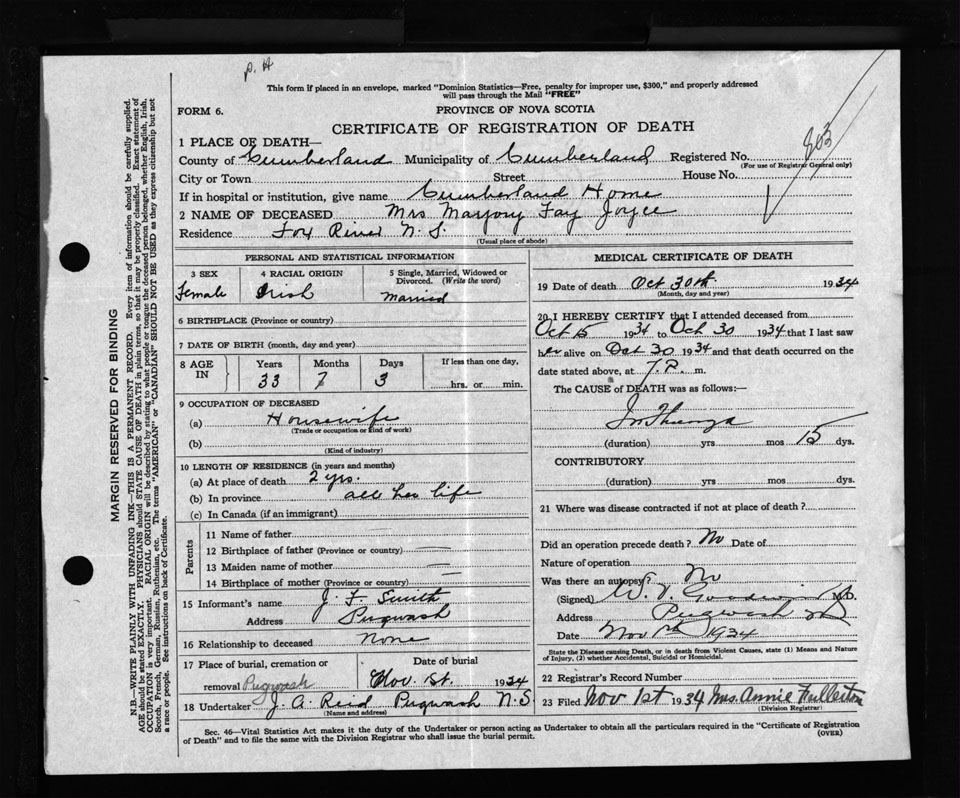 P. H
This form if placed in an envelope, marked "Dominion Statistics—Free, penalty for improper use, $300," and properly addressed
will pass through the Mail "FREE"
FORM 6.
PROVINCE OF NOVA SCOTIA
CERTIFICATE OF REGISTRATION OF DEATH
803
1 PLACE OF DEATH—
County of Cumberland Municipality of Cumberland Registered No.
(For use of Registrar General only)
City or Town Street House No.
If in hospital or institution, give name Cumberland Home
2 NAME OF DECEASED Mrs Marjory Fay Joyce
Residence Fox River N. S.
(Usual place of abode)
PERSONAL AND STATISTICAL INFORMATION
3 SEX 4 RACIAL ORIGIN 5 Single, Married, Widowed or
Divorced. (Write the word)
Female Irish Married
6 BIRTHPLACE (Province or country)
7 DATE OF BIRTH (month, day and year)
8 AGE IN Years Months Days If less than one day,
33 7 3 hrs. or min.
9 OCCUPATION OF DECEASED
(a) Housewife
(Trade or occupation or kind of work)
(b)
(Kind of industry)
10 LENGTH OF RESIDENCE (in years and months)
(a) At place of death 2 yrs.
(b) In province all her life
(c) In Canada (if an immigrant)
Parents
11 Name of father
12 Birthplace of father (Province or country)
13 Maiden name of mother
14 Birthplace of mother (Province or country)
15 Informant's name J. F. Smith
Address Pugwash
16 Relationship to deceased None
17 Place of burial, cremation or Date of burial
removal Pugwash Nov. 1st. 1934
18 Undertaker J. A. Reid Pugwash N.S.
(Name and address)
MEDICAL CERTIFICATE OF DEATH
19 Date of death Oct 30th 1934
(Month, day and year)
20 I HEREBY CERTIFY that I attended deceased from
Oct 15 1934 to Oct 30 1934 that I last saw
her alive on Oct 30 1934 and that death occurred on the
date stated above, at 7. P. m.
The CAUSE of DEATH was as follows:—
(duration) yrs mos 15 dys.
CONTRIBUTORY
(duration) yrs. mos. dys.
21 Where was disease contracted if not at place of death ?
Did an operation precede death ? No Date of
Nature of operation
Was there an autopsy? No
(Signed) W. V. Goodwin M.D.
Address Pugwash
Date Nov 1st 1934
State the Disease causing Death, or in death from Violent Causes, state (1) Means and Nature
of Injury, (2) whether Accidental, Suicidal or Homicidal.
22 Registrar's Record Number
23 Filed Nov 1st 1934 Mrs. Annie Fullerton
(Division Registrar)
Sec. 46—Vital Statistics Act makes it the duty of the Undertaker or person acting as Undertaker to obtain all the particulars required in the "Certificate of Registration
of Death" and to file the same with the Division Registrar who shall issue the burial permit. (OVER)
MARGIN RESERVED FOR BINDING
N.B.—WRITE PLAINLY WITH UNFADING INK—THIS IS A PERMANENT RECORD. Every item of information should be carefully supplied.
AGE should be stated EXACTLY. PHYSICIANS should STATE CAUSE OF DEATH in plain terms, so that it may be properly classified. Exact statement of
OCCUPATION is very important. RACIAL ORIGIN will be described by stating to what people or tongue the deceased person belonged, whether English, Irish,
Scotch, French, German, Russian, Ruthenian, etc. The terms "AMERICAN" or "CANADIAN" SHOULD NOT BE USED as they express citizenship but not
a race or people. See instructions on back of Certificate.